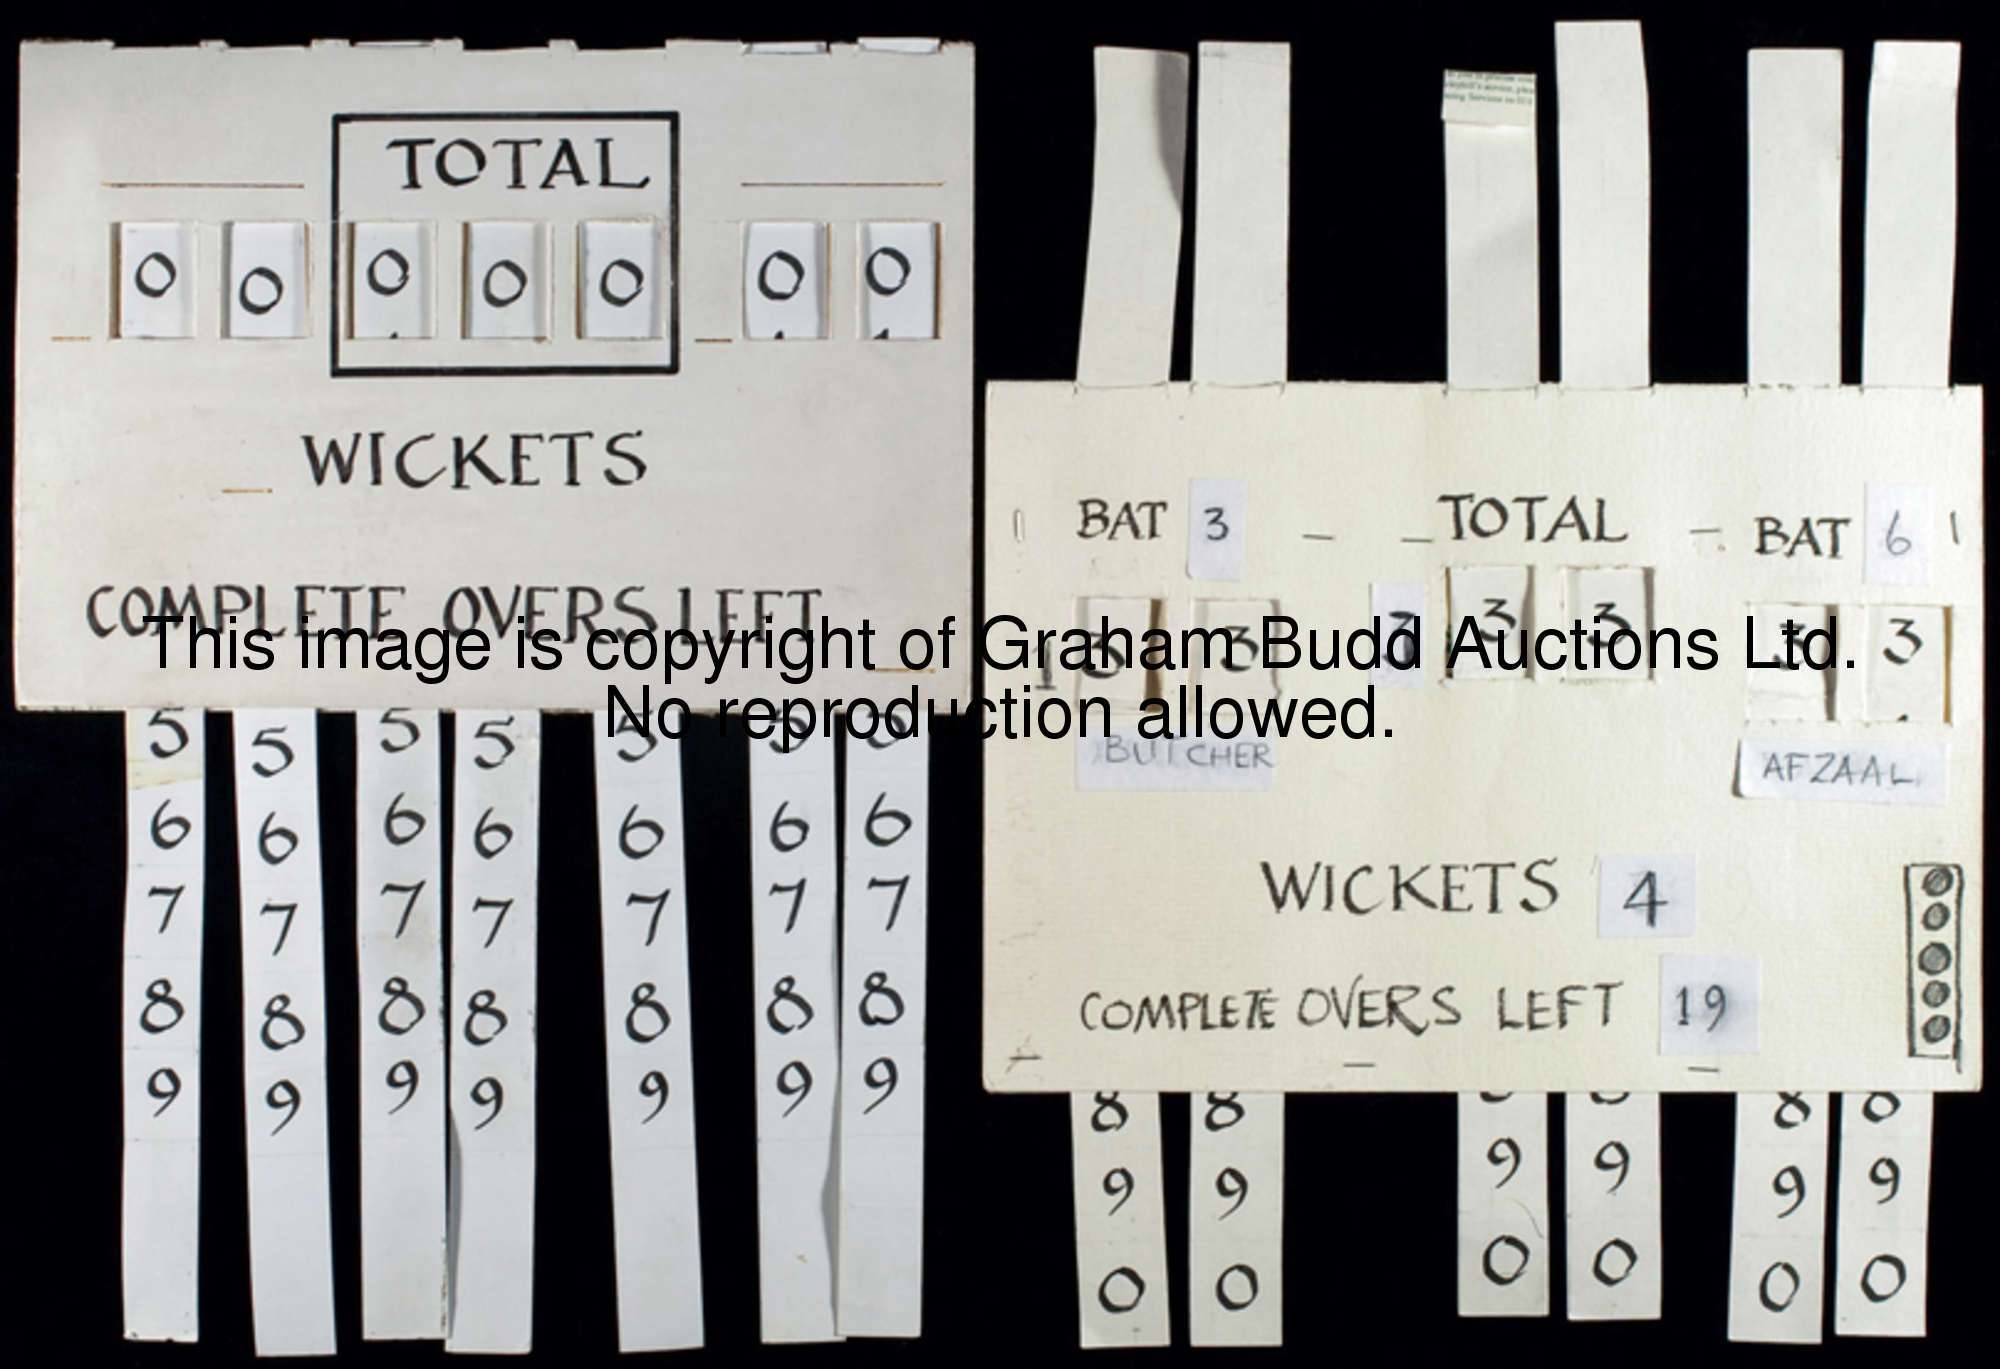 TOTAL
0 0 0 0 0 0 0
WICKETS
COMPLETE OVERS LEFT
5 5 5 5 5 5 5
6 6 6 6 6 6 6
7 7 7 7 7 7 7
8 8 8 8 8 8 8
9 9 9 9 9 9 9
BAT 3 TOTAL BAT 6
1 3 3 3 3 3 3 3
BUTCHER AFZAAL
WICKETS 4
COMPLETE OVERS LEFT 19
8 8 8 8 8 8
9 9 9 9 9 9
0 0 0 0 0 0
This image is copyright of Graham Budd Auctions Ltd.
No reproduction allowed.